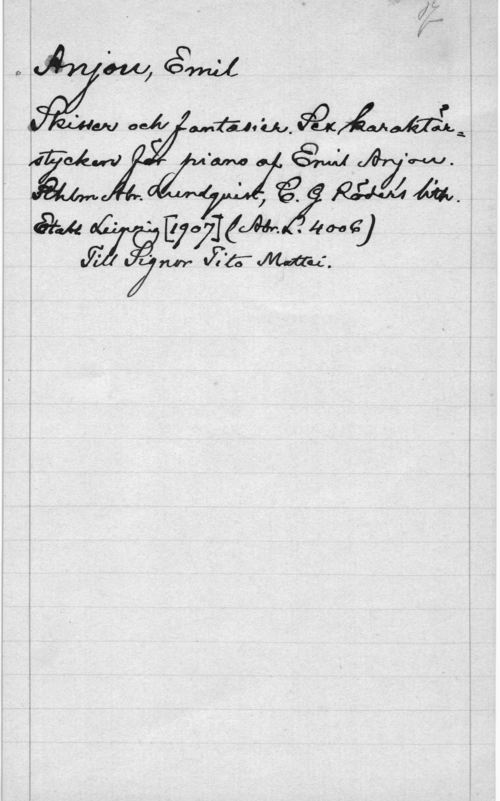 Anjou, Emil
Skisser och fantasier. Sex karaktär=
stycken för piano af Emil Anjou.
Sthlm Abr. Lundquist, C. G Röders lith.
Etabl Leipzig [1907] (Abr. L. 4006)
Till Signor Tito Mattei.